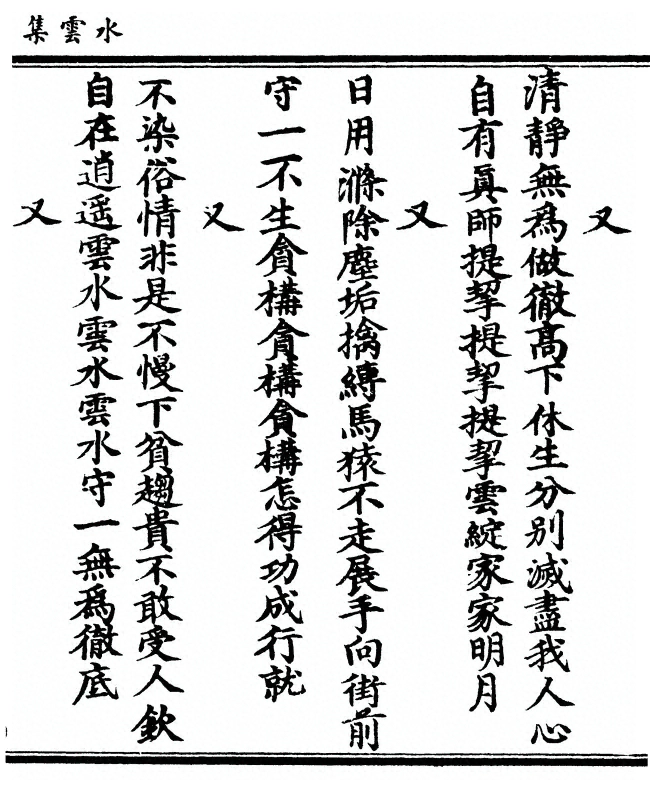 水雲集
又
清靜無為做徹高下休生分别滅盡我人心
自有眞師提挈提挈提挈雲綻家家明月
又
日用滌除塵垢擒縛馬猿不走展手向街前
守一不生貪構貪構貪構怎得功成行就
又
不染俗情非是不慢下貧趨貴不敢受人欽
自在逍遥雲水雲水雲水守一無為徹底
又